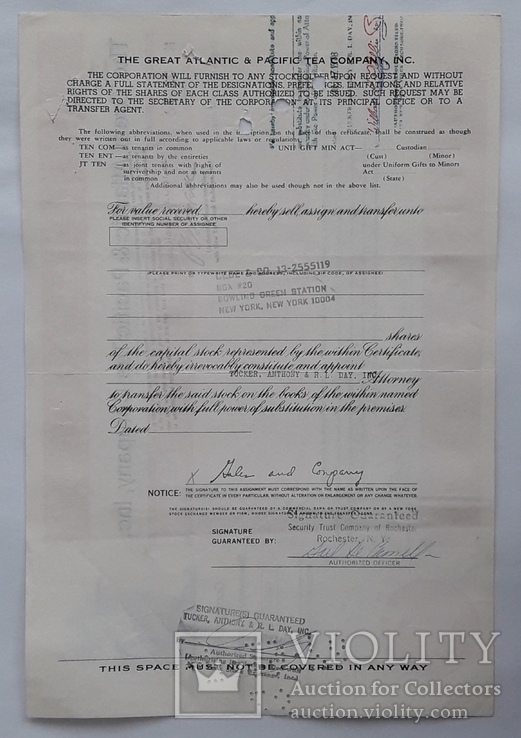 THE GREAT ATLANTIC & PACIFIC TEA COMPANY INC.
THE CORPORATION WILL FURNISH TO ANY STOCKHOLDER UPON REQUEST AND WITHOUT
CHARGE A FULL STATEMENT OF THE DESIGNATIONS, PREFERENCES, LIMITATIONS AND RELATIVE
RIGHTS OF THE SHARES OF EACH CLASS AUTHORIZED TO BE ISSUED. SUCH REQUEST MAY BE
DIRECTED TO THE SECRETARY OF THE CORPORATION AT ITS PRINCIPAL OFFICE OR TO A
TRANSFER AGENT.
The following abbreviations, when used in the inscription on the face of this certificate, shall be construed as though
they were written out in full according to applicable laws or regulations:
TEN COM—as tenants in common UNIF GIFT MIN ACT— Custodian
TEN ENT —as tenants by the entireties (Cust) (Minor)
JT TEN —as joint tenants with right of under Uniform Gifts to Minors
survivorship and not as tenants Act
in common (State)
Additional abbreviations may also be used though not in the above list.
For value received, hereby sell, assign and transfer unto
PLEASE INSERT SOCIAL SECURITY OR OTHER
IDENTIFYING NUMBER OF ASSIGNEE
(PLEASE PRINT OR TYPEWRITE NAME AND ADDRESS, INCLUDING ZIP CODE, OF ASSIGNEE)
& CO. 13-2555119
BOX #20
BOWLING GREEN STATION
NEW YORK, NEW YORK 10004
shares
of the capital stock represented by the within Certificate,
and do hereby irrevocably constitute and appoint
TUCKER, ANTHONY & R. L. DAY, INC.
Attorney
to transfer the said stock on the books of the within named
Corporation, with full power of substitution in the premises.
Dated
X Hales and Company
NOTICE: THE SIGNATURE TO THIS ASSIGNMENT MUST CORRESPOND WITH THE NAME AS WRITTEN UPON THE FACE OF
THE CERTIFICATE IN EVERY PARTICULAR, WITHOUT ALTERATION OR ENLARGEMENT OR ANY CHANGE WHATEVER.
THE SIGNATURE(S) SHOULD BE GUARANTEED BY A COMMERCIAL BANK OR TRUST COMPANY OR BY A NEW YORK
STOCK EXCHANGE MEMBER OR FIRM, WHOSE
Signature Guaranteed
Security Trust Company of Rochester
SIGNATURE
GUARANTEED BY:
Rochester, N. Y.
AUTHORIZED OFFICER
SIGNATURE(S) GUARANTEED
TUCKER, ANTHONY & R. L. DAY, INC.
Authorized
THIS SPACE MUST NOT BE COVERED IN ANY WAY
VIOLITY
Auction for Collectors
auction.violity.com